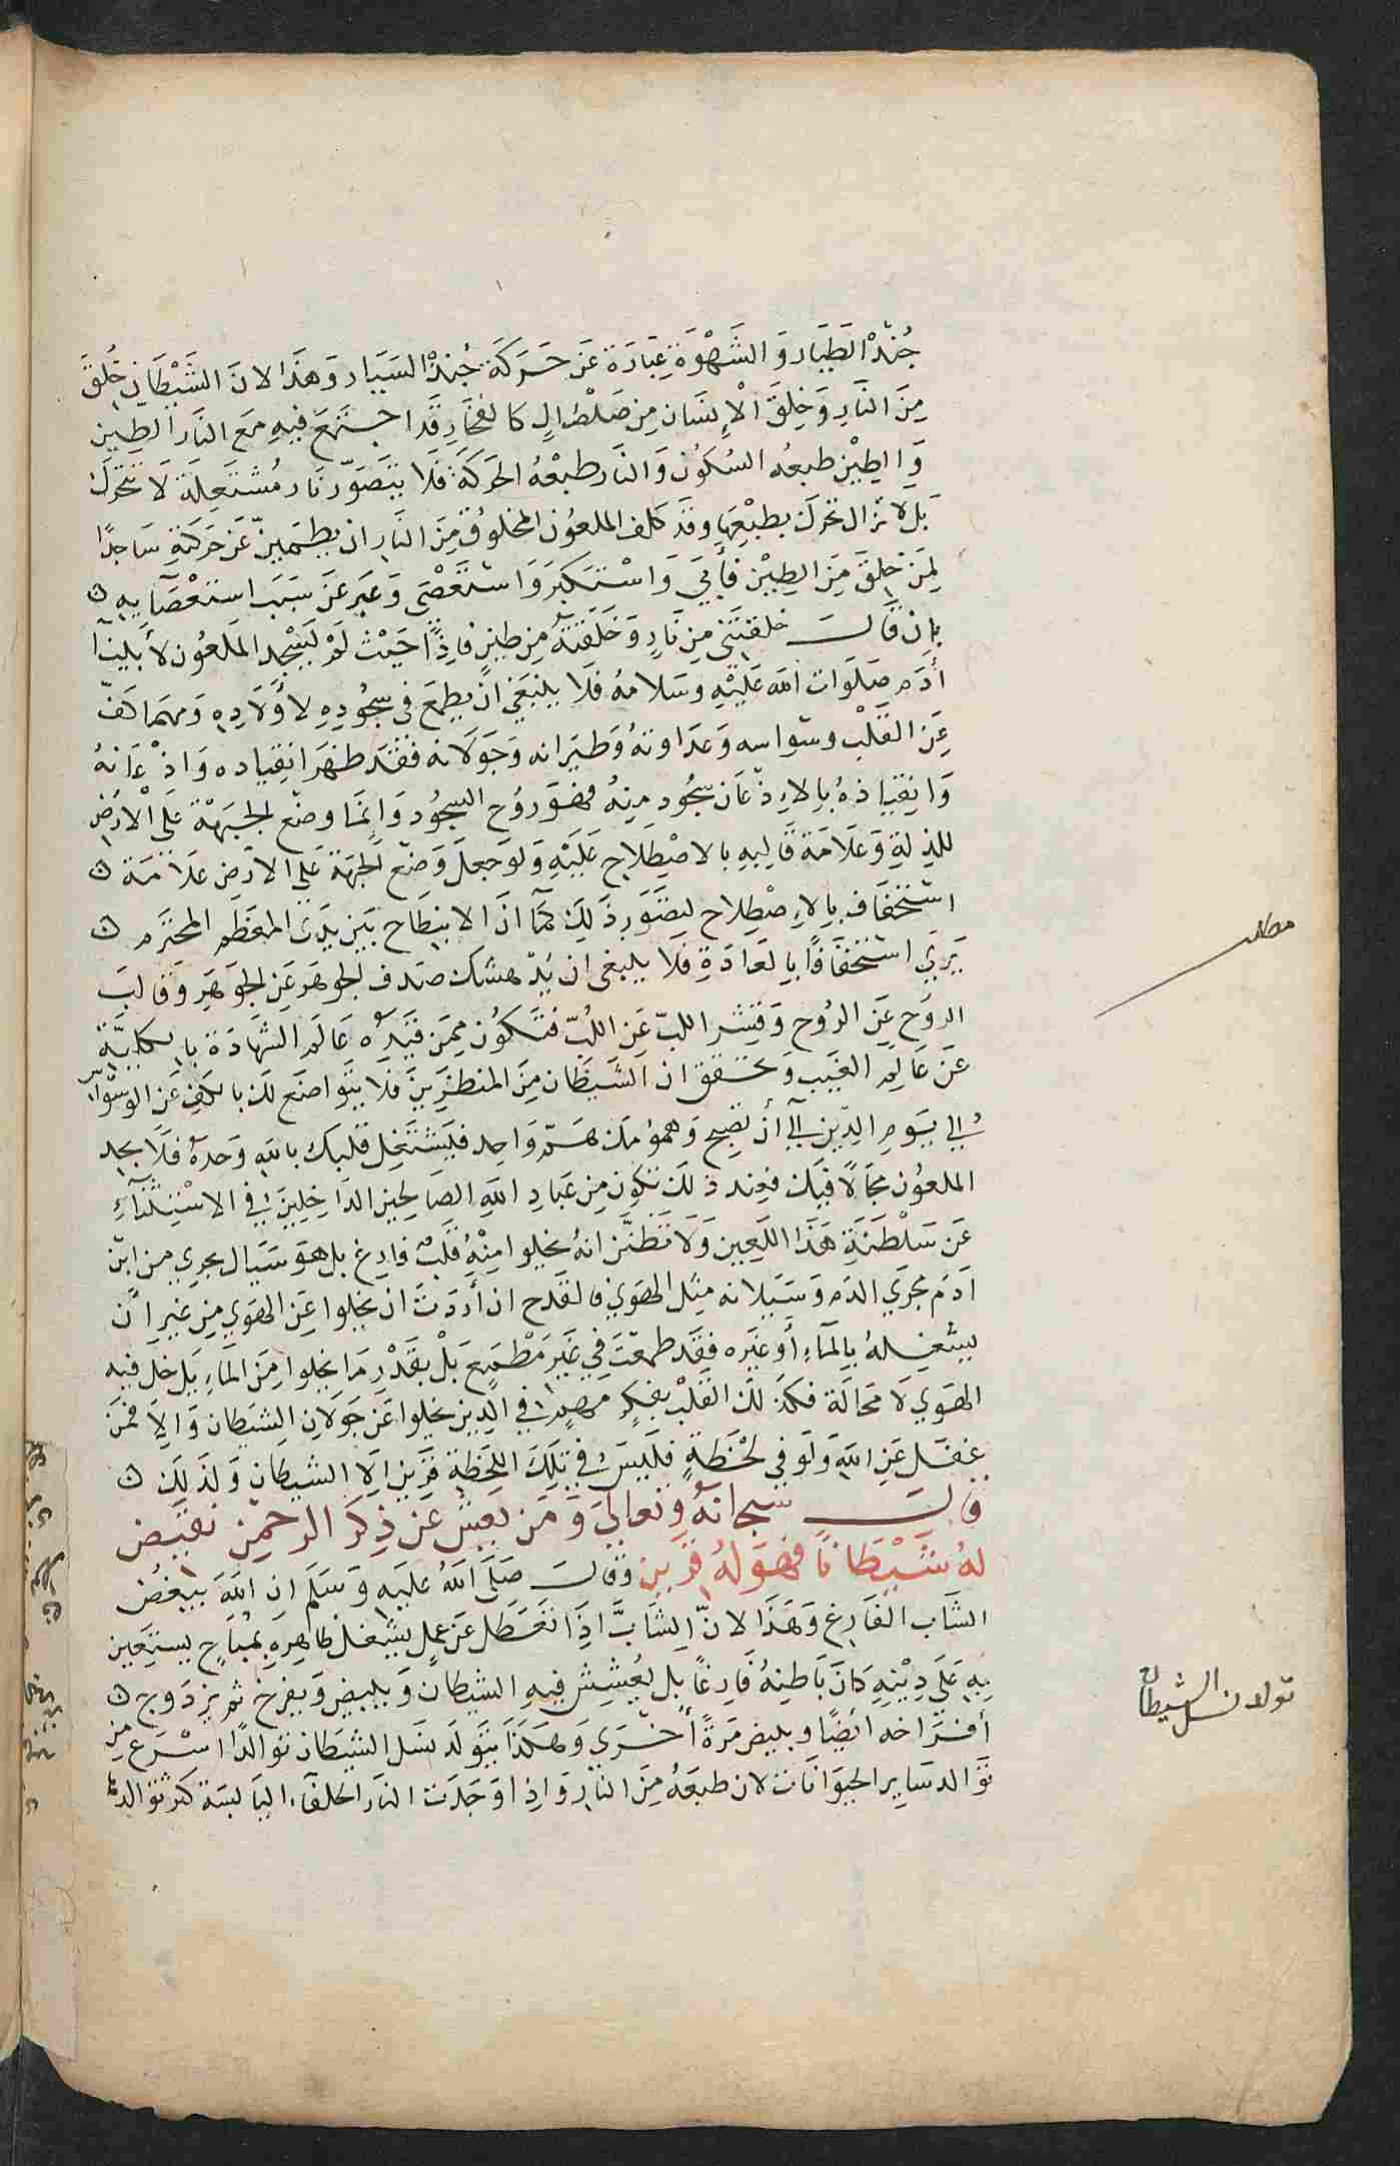 جُنْدُ الطَيَار وَ الشَهْوَة عِبَارَة عَن حَرَكَة جُنْدْ السَيَار وَهَذَا لان الشَيْطَان خُلِقَ
مِنَ النَارِ وَخِلِقَ الْاِنسَان مِن صَلْصَالٍ كالفخَارِ قَد اجتَمَع فيهِ مَع النَار الطِين
وَالطِيْن طبعُه السُكوُن وَالنَار طَبْعُهُ الحَركَة فَلا يتَصَوّر نَار مُشتَعِلَة لَا تتحَرك
بَل لا تزال تحرك بطبْعِهَا وقد كلف الملعُون المخلوق مِنَ النَار ان يطمَيِنّ عَن حركتهِ سَاجدًا
لِمَن خلِقَ مِنَ الطِيْن فأبيَ وَاسْتَكبَرَ وَاستَعْصَى وَعَبَر عَن سَبَب استعْصَايِهِ ن
بان قَالَ خلقتَنِي مِن نَارٍ وَخَلَقتَهُ مِن طينٍ فاذًا حَيْث لَمْ يَسْجُد المَلعُون لأبينَا
أدَم صَلَوَات الله عَلَيْهِ وسَلامهُ فلا ينبَغي ان يطمَع في سجُودِهِ لأوَلَادِهِ وَمهما كفّ
عَنِ القَلْب وسْوَاسه وَعدَاوتهُ وَطيَرانه وَجَوَلَانه فقد ظهَر انقِياده وَاذْعَانهُ
وَانقِيَادهُ بِالاِذعَان سجُود مِنهُ فهوَ رُوح السجُود وَانِمَا وضع الجَبهَة عَلي الارض
للذِلةِ وَعَلَامَة قَالبِهِ بالاصْطِلاح عَليْهِ وَلَو جعلَ وَضع الجَبهَة عَلي الارض عَلامَة ن
استخفَاف بِالاِصْطِلاح ليصَوَر ذَلِكَ كمَا انَ الانبِطَاح بَين يَدَى المعَظم المحترَم ن
يَرَي استخفَافًا بِالعَادَةِ فَلا ينبغى ان يُدْهشك صَدف الجوهَر عَنِ الجَوهَرِ وَقالبَ
الروُح عَنِ الرُوح وَقشر اللبّ عَنِ اللُبّ فتَكوُن ممَن قيَدهُ عَالَم الشهَادَة بِالكليَّةِ
عَن عَالم الغَيب وَتحَقق ان الشَيطَان مِنَ المنظرِينَ فَلا يتوَاضَع لكَ بالكفّ عَن الوسْوَاس
الي يَومِ الدِين الي أن تصبح وَهموُمك هَمّ وَاحِد فليَشتَغل قلبك بِاللهِ وَحدهُ فَلا يجد
الملعُون مجَالًا فيك فعِند ذَلِكَ تكون مِن عبَادِ اللهِ الصَالحِين الدَاخِلِينَ فِي الاسْتِثنَآءِ
عَن سَلْطَنَةِ هَذا اللَعِين وَلا تَظنَّن انهُ يخلوا مِنْهُ قَلبٌ فارغ بل هوَ سَيَال يجري من ابن
ادَم مجرَي الدَم وَسَيَلانه مِثل الهَوي في القدح ان أرَدتَ ان يخلوا عَنِ الهَوي مِن غيرِ أن
يشغلهُ بِالمآءِ أو غيره فقَد طمعتَ في غَير مَطمَع بَل بقَدرِ مَا يخلوا مِنَ المآءِ يَدخل فيه
الهَوي لَا محَالَة فكذلك القَلْب بفكر مهمٍ في الدِين يخلوا عَن جَوَلانِ الشيطان وَالا فمَن
غفَل عَنِ اللهِ وَلَو في لحظةٍ فلَيسَ في تِلكَ اللحَظةِ قرين الا الشيطَان وَلذلِك ن
قالَ سبحَانهُ وَتعَاليَ وَمَن يَعشُ عَن ذِكر الرحمن نقيّض
لهُ شَيْطَانًا فهُوَ لهُ قَرين وَقالَ صَلَّى اللهُ عَليهِ وَسَلَم ان اللهَ يبغضُ
الشَاب الفَارِغ وَهَذا لانّ الشَابَّ اذا تعَطل عَن عمَلٍ يشغل ظاهِرهِ بمُبَاح يستَعين
بِهِ عَلَي دِيْنِهِ كانَ بَاطنِهُ فَارِغًا بل يُعشِشُ فيهِ الشيطَان وَيبيض وَيفرخ ثم يزدَوج ن
أفرَاخه ايَضًا وبيض مَرةً أخرَي وَهكَذا يتوَلَد نسَل الشيطَان توَالدًا اسْرَع مِن
توَالد سَاير الحيَوَانَات لان طبعَهُ مِنَ النَارِ وَاذا وَجَدَت النَار الحَلفآء اليَابسَة كثر توَالدهَا
مطلب
تولد نسل الشيطان